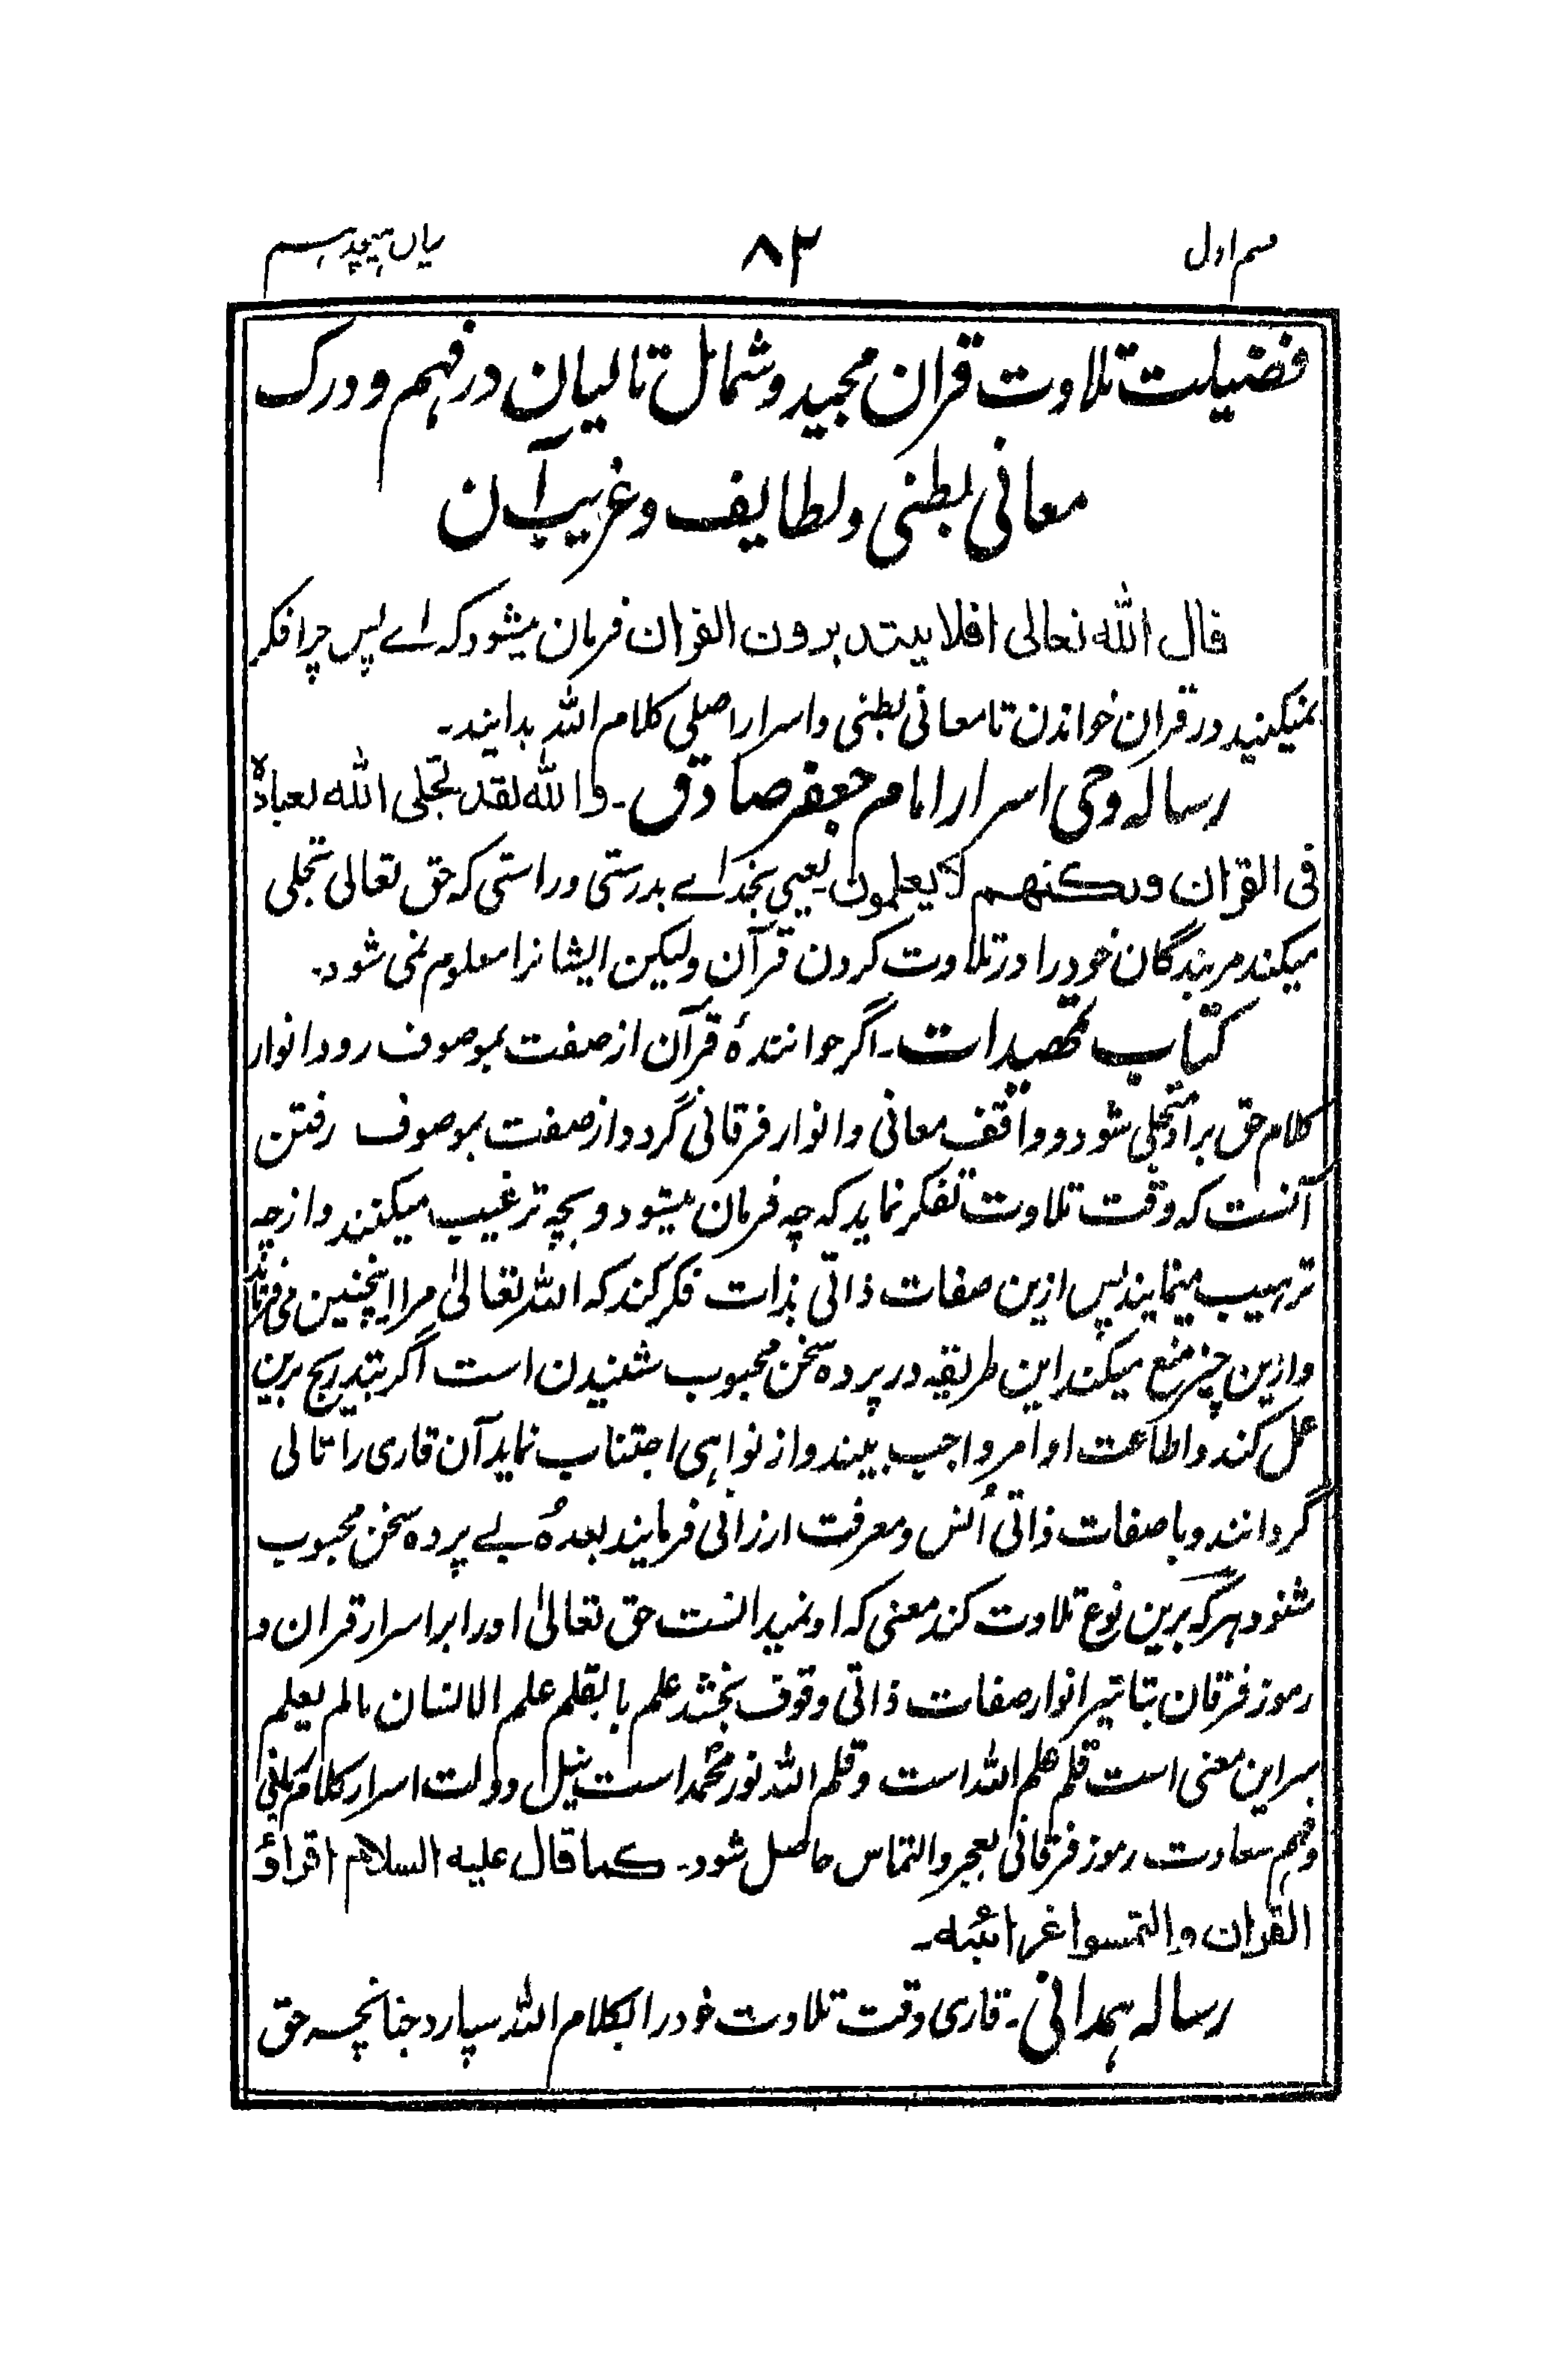 قسم اول ۸۲ بیان هیچدهم
فضیلت تلاوت قران مجید و شمائل تالیان در فهم و درک
معانی بطنی و لطایف و غریب آن
قال الله تعالی افلا یتدبرون القران فرمان میشود که اے پس چرا فکر
نمیکنید در قران خواندن تا معانی بطنی و اسرار اصلی کلام الله بدانید۔
رساله وحی اسرار امام جعفر صادق ۔ والله لقد تجلی الله لعباده
فی القران ولکنهم لا یعلمون یعنی بخدا اے بدرستی و راستی که حق تعالی تجلی
میکند مر بندگان خود را در تلاوت کردن قرآن ولیکن ایشانرا معلوم نمی شود۔
کتاب تمهیدات ۔ اگر خوانندهٔ قرآن از صفت بموصوف رود انوار
کلام حق بر او متجلی شود و واقف معانی و انوار فرقانی گردد و از صفت بموصوف رفتن
آنست که وقت تلاوت تفکر نماید که چه فرمان میشود و بچه ترغیب میکنند و از چه
ترهیب مینمایند پس ازین صفات ذاتی بذات فکر کند که الله تعالیٰ مرا اینچنین می فرماید
و ازین چیز منع میکند این طریقه در پرده سخن محبوب شنیدن است اگر بتدریج برین
عمل کند و اطاعت اوامر واجب بیند و از نواهی اجتناب نماید آن قاری را تالی
گردانند و با صفات ذاتی اُنس و معرفت ارزانی فرمایند بعدهُ بے پرده سخن محبوب
شنود هر که برین نوع تلاوت کند معنی که او نمیدانست حق تعالیٰ او را بر اسرار قران و
رموز فرقان بتاثیر انوار صفات ذاتی وقوف بخشد علم بالقلم علم الانسان مالم یعلم
سر این معنی است قلم علم الله است و قلم الله نور محمد است نیل دولت اسرار کلام ربانی
و فهم سعادت رموز فرقانی بعجز و التماس حاصل شود۔ کما قال علیه السلام اقراؤ
القران والتمسوا غرائبه۔
رساله همدانی ۔ قاری وقت تلاوت خود را بکلام الله سپارد چنانچه حق